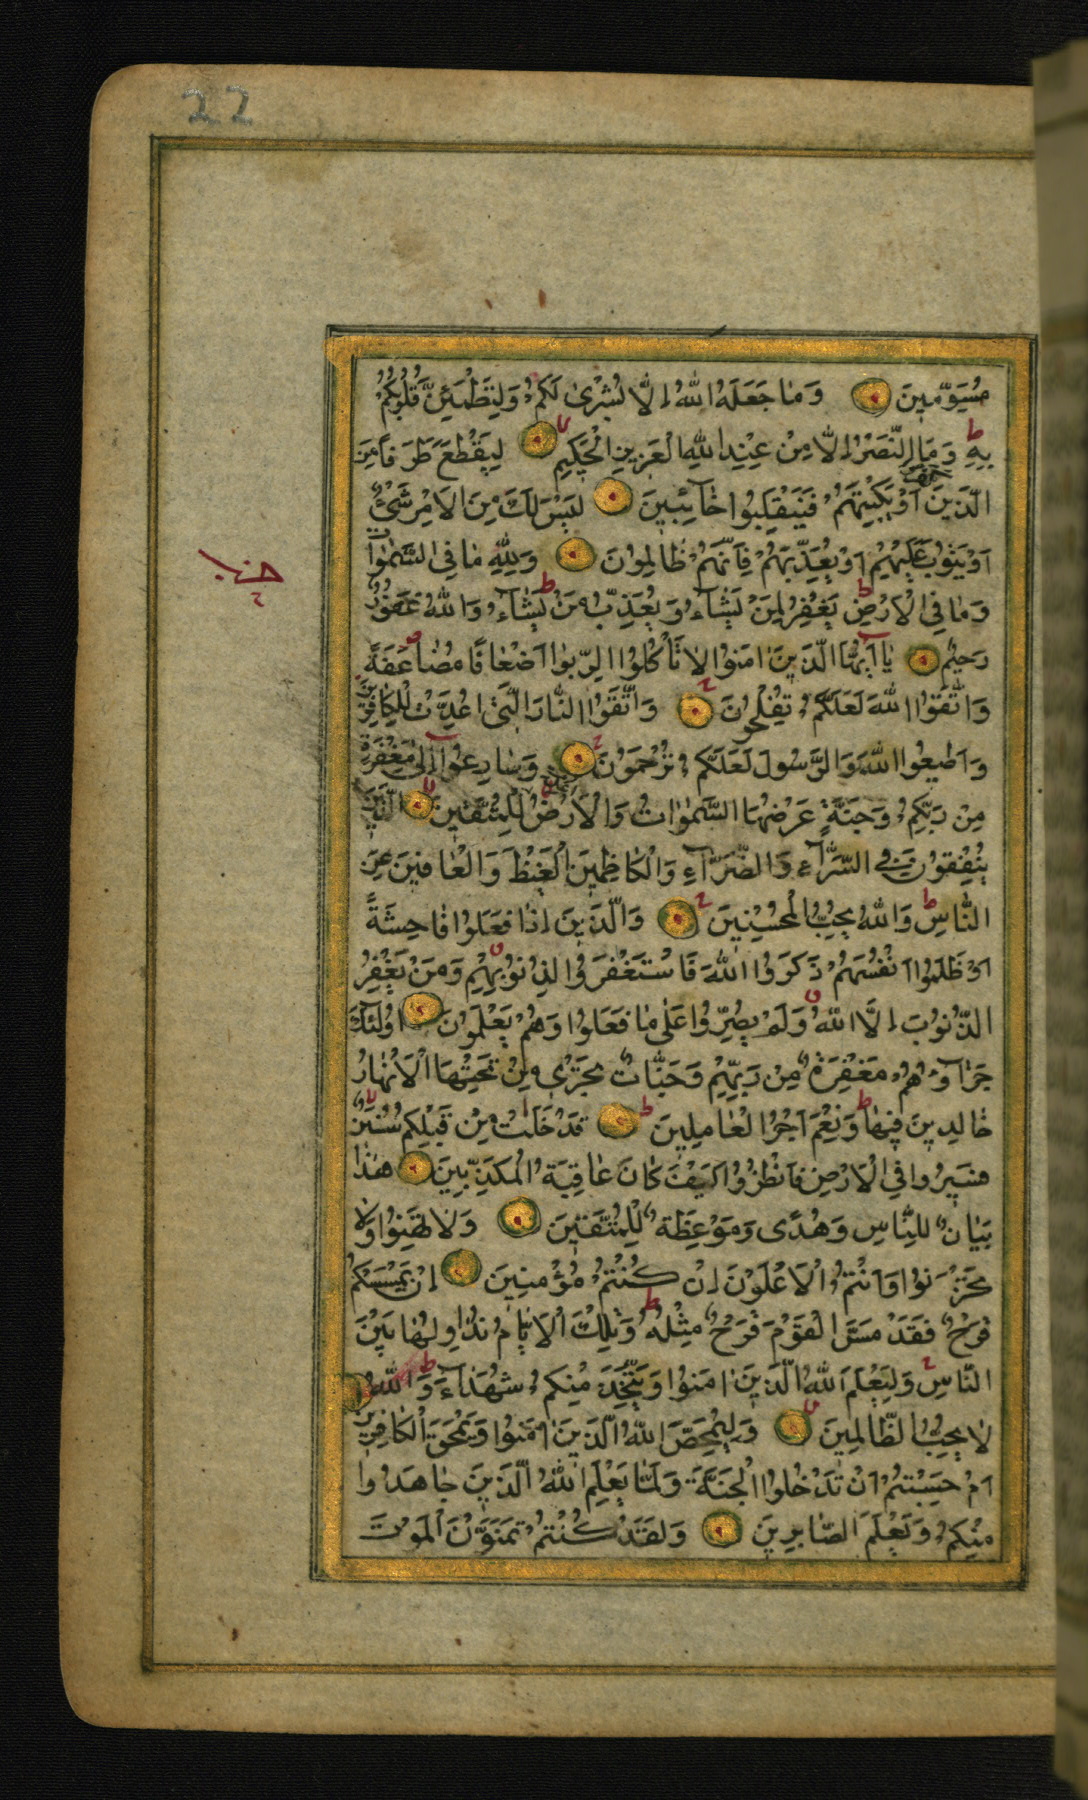 22
مُسَوِّمِينَ وَمَا جَعَلَهُ اللّٰهُ اِلَّا بُشْرٰى لَكُمْ وَلِتَطْمَئِنَّ قُلُوبُكُمْ
بِهِ وَمَا النَّصْرُ اِلَّا مِنْ عِنْدِ اللّٰهِ الْعَزِيزِ الْحَكِيمِ لِيَقْطَعَ طَرَفًا مِنَ
الَّذِينَ كفروا اَوْ يَكْبِتَهُمْ فَيَنْقَلِبُوا خَائِبِينَ لَيْسَ لَكَ مِنَ الْاَمْرِ شَيْءٌ
اَوْ يَتُوبَ عَلَيْهِمْ اَوْ يُعَذِّبَهُمْ فَاِنَّهُمْ ظَالِمُونَ وَلِلّٰهِ مَا فِي السَّمٰوَاتِ
وَمَا فِي الْاَرْضِ يَغْفِرُ لِمَنْ يَشَاءُ وَيُعَذِّبُ مَنْ يَشَاءُ وَاللّٰهُ غَفُورٌ
رَحِيمٌ يَا اَيُّهَا الَّذِينَ اٰمَنُوا لَا تَاْكُلُوا الرِّبٰوا اَضْعَافًا مُضَاعَفَةً
وَاتَّقُوا اللّٰهَ لَعَلَّكُمْ تُفْلِحُونَ وَاتَّقُوا النَّارَ الَّتِي اُعِدَّتْ لِلْكَافِرِينَ
وَاَطِيعُوا اللّٰهَ وَالرَّسُولَ لَعَلَّكُمْ تُرْحَمُونَ وَسَارِعُوا اِلٰى مَغْفِرَةٍ
مِنْ رَبِّكُمْ وَجَنَّةٍ عَرْضُهَا السَّمٰوَاتُ وَالْاَرْضُ اعدت لِلْمُتَّقِينَ الَّذِينَ
يُنْفِقُونَ فِي السَّرَّاءِ وَالضَّرَّاءِ وَالْكَاظِمِينَ الْغَيْظَ وَالْعَافِينَ عَنِ
النَّاسِ وَاللّٰهُ يُحِبُّ الْمُحْسِنِينَ وَالَّذِينَ اِذَا فَعَلُوا فَاحِشَةً
اَوْ ظَلَمُوا اَنْفُسَهُمْ ذَكَرُوا اللّٰهَ فَاسْتَغْفَرُوا لِذُنُوبِهِمْ وَمَنْ يَغْفِرُ
الذُّنُوبَ اِلَّا اللّٰهُ وَلَمْ يُصِرُّوا عَلٰى مَا فَعَلُوا وَهُمْ يَعْلَمُونَ اُولٰئِكَ
جَزَاؤُهُمْ مَغْفِرَةٌ مِنْ رَبِّهِمْ وَجَنَّاتٌ تَجْرِي مِنْ تَحْتِهَا الْاَنْهَارُ
خَالِدِينَ فِيهَا وَنِعْمَ اَجْرُ الْعَامِلِينَ قَدْ خَلَتْ مِنْ قَبْلِكُمْ سُنَنٌ
فَسِيرُوا فِي الْاَرْضِ فَانْظُرُوا كَيْفَ كَانَ عَاقِبَةُ الْمُكَذِّبِينَ هٰذَا
بَيَانٌ لِلنَّاسِ وَهُدًى وَمَوْعِظَةٌ لِلْمُتَّقِينَ وَلَا تَهِنُوا وَلَا
تَحْزَنُوا وَاَنْتُمُ الْاَعْلَوْنَ اِنْ كُنْتُمْ مُؤْمِنِينَ اِنْ يَمْسَسْكُمْ
قَرْحٌ فَقَدْ مَسَّ الْقَوْمَ قَرْحٌ مِثْلُهُ وَتِلْكَ الْاَيَّامُ نُدَاوِلُهَا بَيْنَ
النَّاسِ وَلِيَعْلَمَ اللّٰهُ الَّذِينَ اٰمَنُوا وَيَتَّخِذَ مِنْكُمْ شُهَدَاءَ وَاللّٰهُ
لَا يُحِبُّ الظَّالِمِينَ وَلِيُمَحِّصَ اللّٰهُ الَّذِينَ اٰمَنُوا وَيَمْحَقَ الْكَافِرِينَ
اَمْ حَسِبْتُمْ اَنْ تَدْخُلُوا الْجَنَّةَ وَلَمَّا يَعْلَمِ اللّٰهُ الَّذِينَ جَاهَدُوا
مِنْكُمْ وَيَعْلَمَ الصَّابِرِينَ وَلَقَدْ كُنْتُمْ تَمَنَّوْنَ الْمَوْتَ
حزب